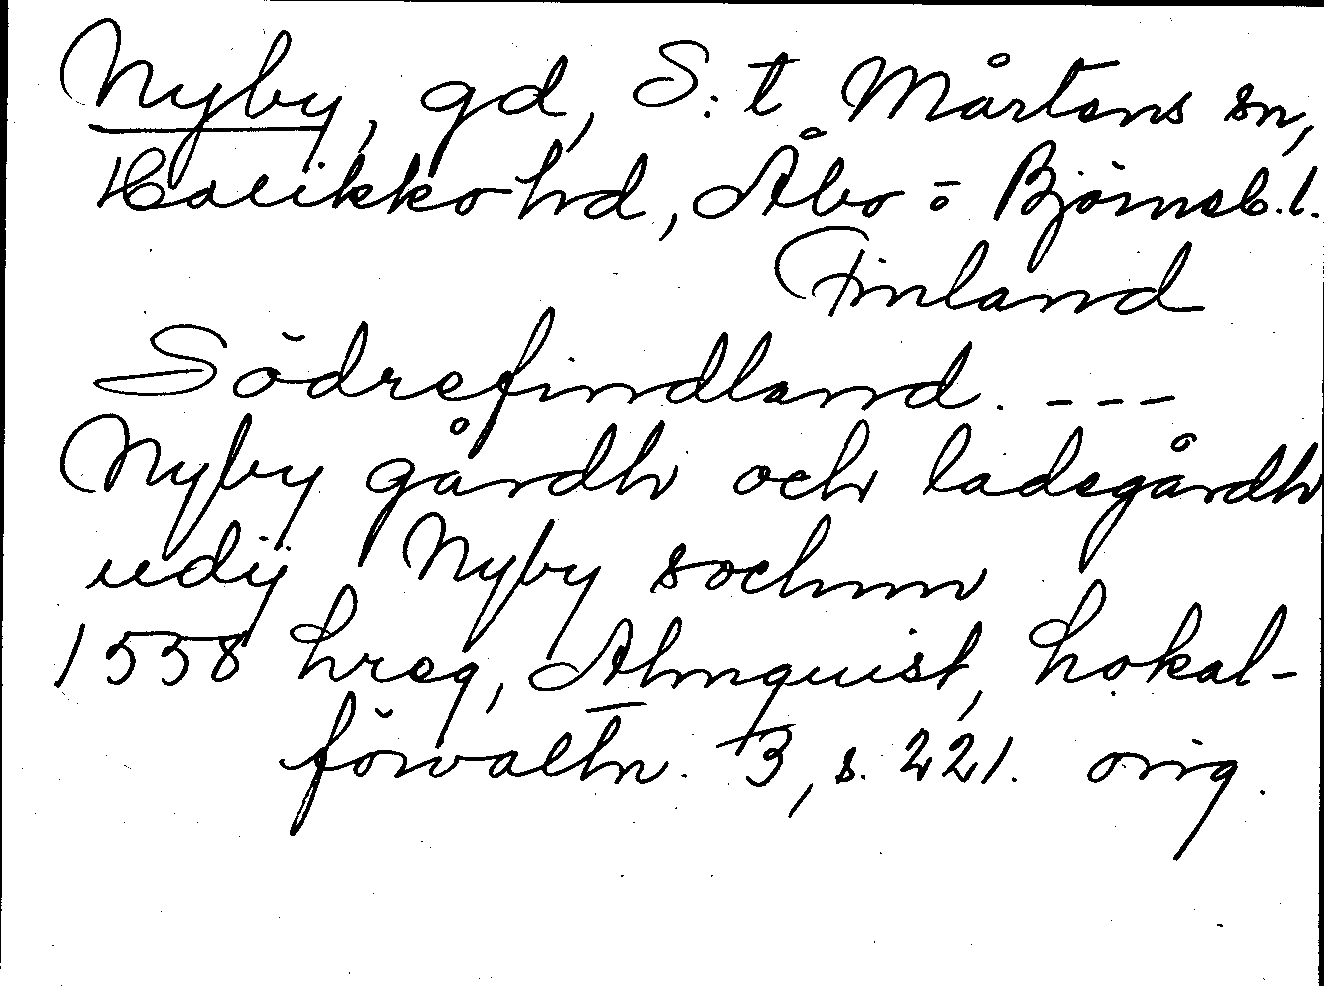 Nyby, gd, S:t Mårtens sn,
Halikko hd, Åbo o Björneb. l.
Finland
Södrefindland. ---
Nyby gårdh och ladegårdh
udij Nyby sochnn
1558 hreg, Almquist, Lokal-
förvaltn. 3, s. 221. orig.